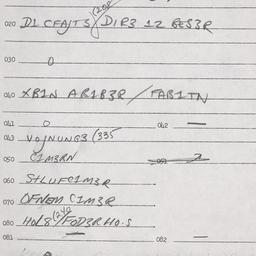 020 D1 CFAJTS/DIR3 12 BES3R
030 0
040 XB1N AR1B3R / FAB1TN
041 0 042 —
043 VOJNUNG3 (335
050 C1M3RN
060 SHLUFC1M3R
070 OFNEM C1M3R
080 HOL8/FOD3RHO.S
081 — 082 —